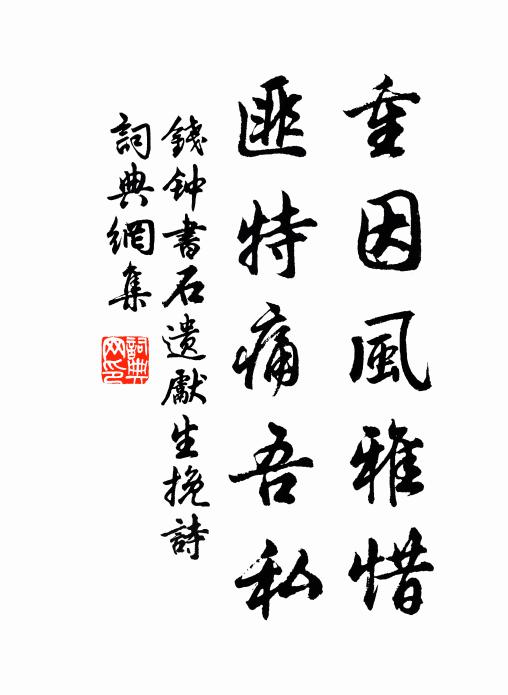 重因風雅惜
匪特痛吾私
錢钟書石遺獻生挽詩
詞典網集
詞典网印